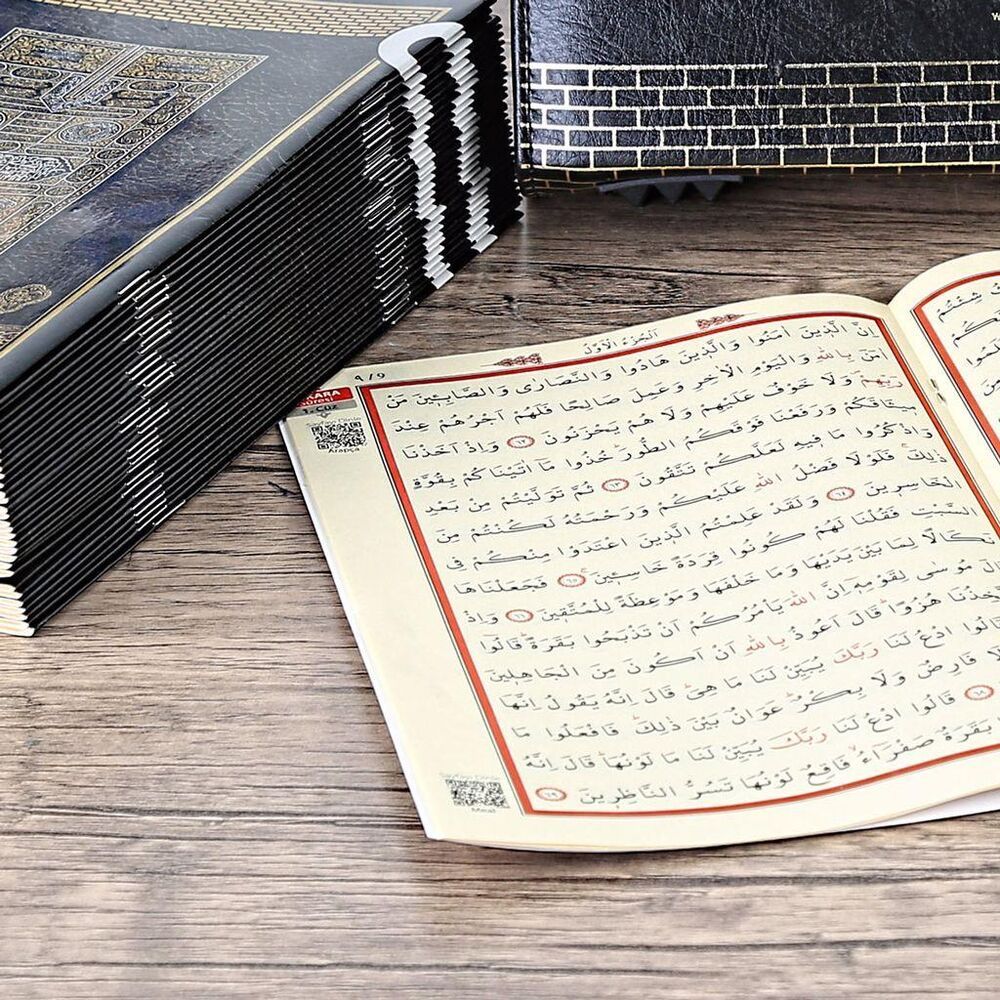 ٩/9
اَلْجُزْءُ الْاَوَّلُ
KARA
1. CÜZ
Arapça
اِنَّ الَّذ۪ينَ اٰمَنُوا وَالَّذ۪ينَ هَادُوا وَالنَّصَارٰى وَالصَّابِـ۪ٔينَ مَنْ
اٰمَنَ بِاللّٰهِ وَالْيَوْمِ الْاٰخِرِ وَعَمِلَ صَالِحًا فَلَهُمْ اَجْرُهُمْ عِنْدَ
رَبِّهِمْ وَلَا خَوْفٌ عَلَيْهِمْ وَلَا هُمْ يَحْزَنُونَ ٦٢ وَاِذْ اَخَذْنَا
م۪يثَاقَكُمْ وَرَفَعْنَا فَوْقَكُمُ الطُّورَ خُذُوا مَٓا اٰتَيْنَاكُمْ بِقُوَّةٍ
وَاذْكُرُوا مَا ف۪يهِ لَعَلَّكُمْ تَتَّقُونَ ٦٣ ثُمَّ تَوَلَّيْتُمْ مِنْ بَعْدِ
ذٰلِكَ فَلَوْلَا فَضْلُ اللّٰهِ عَلَيْكُمْ وَرَحْمَتُهُ لَكُنْتُمْ مِنَ
الْخَاسِر۪ينَ ٦٤ وَلَقَدْ عَلِمْتُمُ الَّذ۪ينَ اعْتَدَوْا مِنْكُمْ فِي
السَّبْتِ فَقُلْنَا لَهُمْ كُونُوا قِرَدَةً خَاسِـ۪ٔينَ ٦٥ فَجَعَلْنَاهَا
نَكَالًا لِمَا بَيْنَ يَدَيْهَا وَمَا خَلْفَهَا وَمَوْعِظَةً لِلْمُتَّق۪ينَ ٦٦ وَاِذْ
مُوسٰى لِقَوْمِه۪ٓ اِنَّ اللّٰهَ يَأْمُرُكُمْ اَنْ تَذْبَحُوا بَقَرَةً قَالُٓوا
هُزُوًا قَالَ اَعُوذُ بِاللّٰهِ اَنْ اَكُونَ مِنَ الْجَاهِل۪ينَ
ادْعُ لَنَا رَبَّكَ يُبَيِّنْ لَنَا مَا هِيَ قَالَ اِنَّهُ يَقُولُ اِنَّهَا
فَارِضٌ وَلَا بِكْرٌ عَوَانٌ بَيْنَ ذٰلِكَ فَافْعَلُوا مَا
٦٨ قَالُوا ادْعُ لَنَا رَبَّكَ يُبَيِّنْ لَنَا مَا لَوْنُهَا قَالَ اِنَّهُ
بَقَرَةٌ صَفْرَٓاءُ فَاقِعٌ لَوْنُهَا تَسُرُّ النَّاظِر۪ينَ ٦٩
Meali
شِئْتُمْ